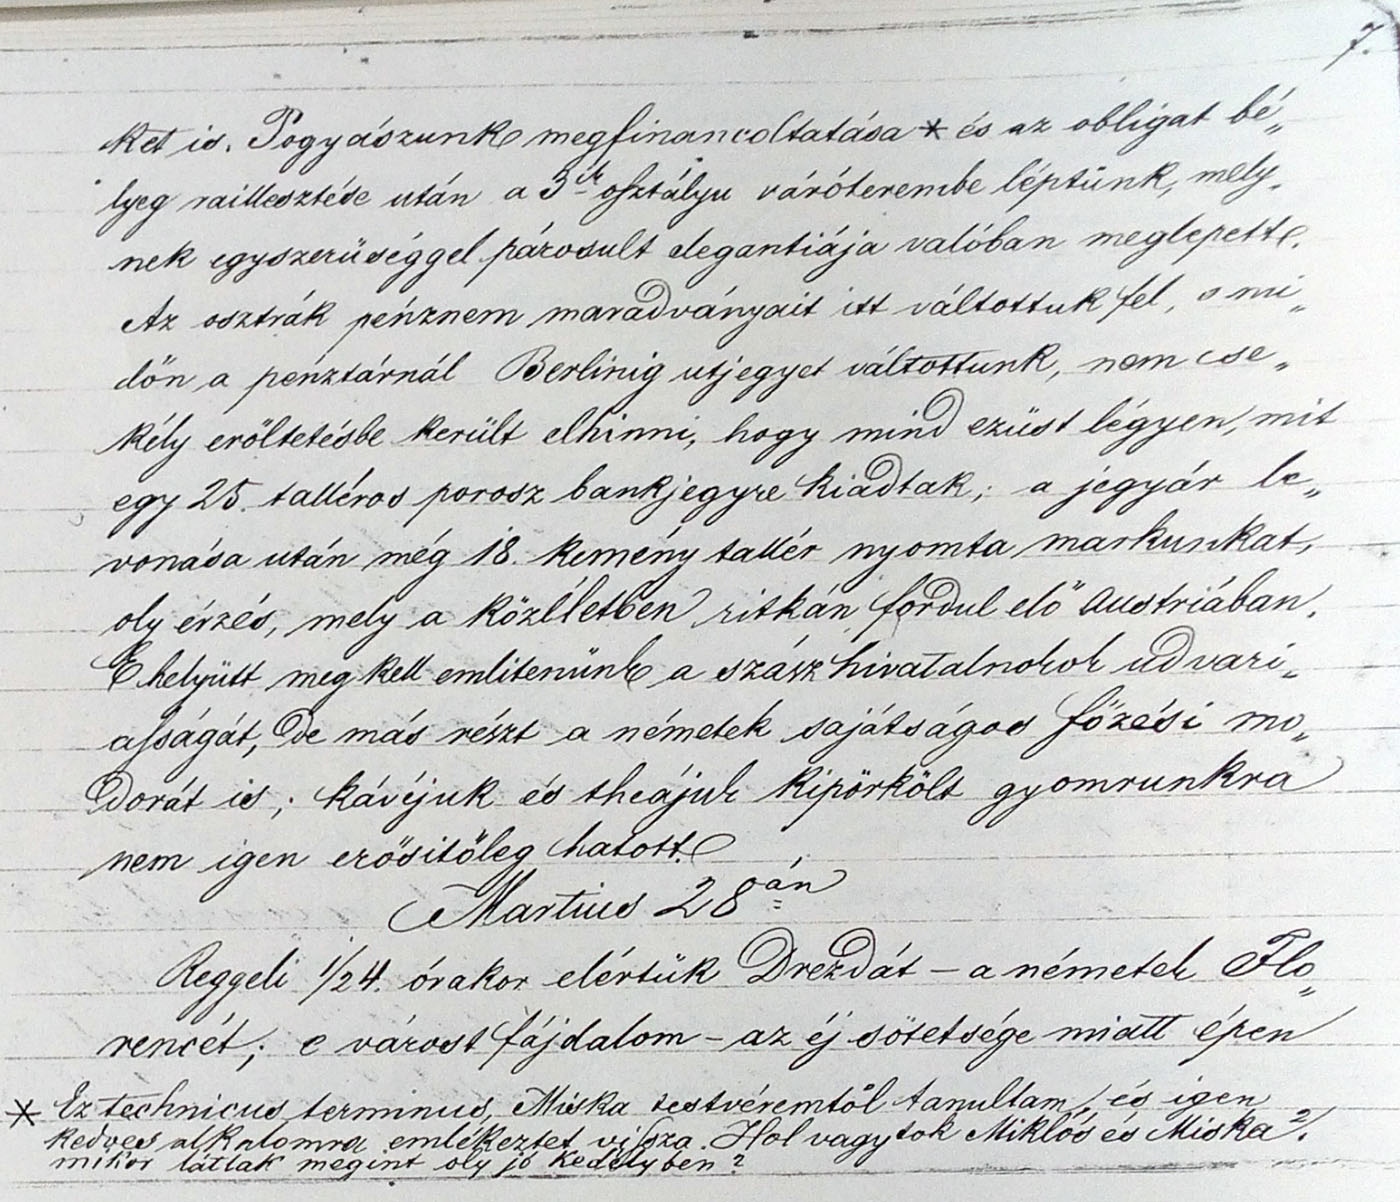 7.
ket is. Pogyászunk megfinancoltatása * és az obligat bé„
lyeg raillesztése után a 3ik osztályu váróterembe léptünk, mely„
nek egyszerüséggel párosult elegantiája valóban meglepett.
Az osztrák pénznem maradványait itt váltottuk fel, s mi„
dőn a pénztárnál Berlinig utjegyet váltottunk, nem cse„
kély erőltetésbe került elhinni, hogy mind ezüst légyen, mit
egy 25. talléros porosz bankjegyre kiadtak; a jegyár le„
vonása után még 18. kemény tallér nyomta markunkat,
oly érzés, mely a közéletben ritkán fordul elő Austriában.
E helyütt meg kell emlitenünk a szász hivatalnokok udvari„
asságát, de más részt a németek sajátságos főzési mo„
dorát is; kávéjuk és theájuk kipörkölt gyomrunkra
nem igen erősitőleg hatott.
Martius 28án
Reggeli 1/24. órakor elértük Drezdát – a németek Flo„
rencét; e várost fájdalom – az éj sötetsége miatt épen
* Ez technicus terminus, Miska testvéremtől tanultam, és igen
kedves alkalomra emlékeztet vissza. Hol vagytok Miklós és Miska?
mikor látlak megint oly jó kedélyben?